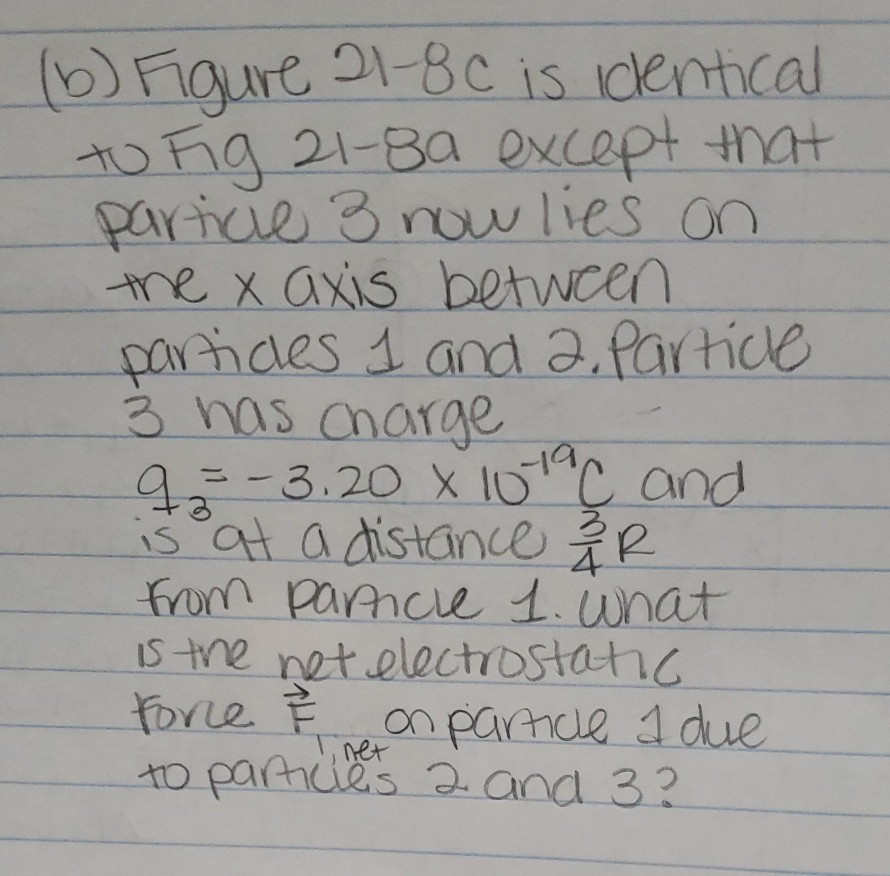 (b) Figure 21-8c is identical
to Fig 21-8a except that
particle 3 now lies on
the x axis between
particles 1 and 2. Particle
3 has charge
q₃ = -3.20 x 10⁻¹⁹C and
is at a distance 3/4 R
from particle 1. What
is the net electrostatic
force F⃗₁,net on particle 1 due
to particles 2 and 3?